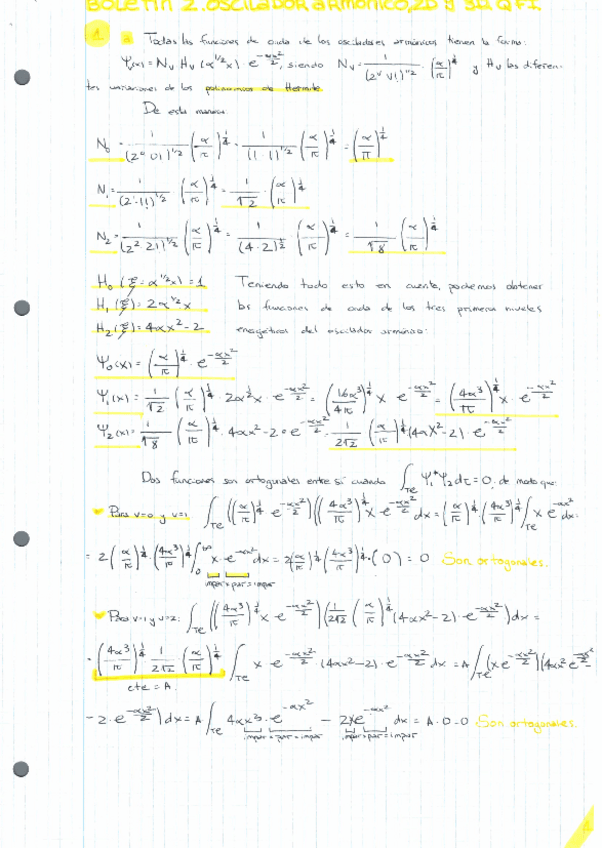 BOLETÍN 2. OSCILADOR ARMÓNICO, 2D y 3D. QFI.
1 a Todas las funciones de onda de los osciladores armónicos tienen la forma:
Ψ(x) = Nv Hv (α^1/2 x) · e^(-αx²/2), siendo Nv = 1/(2^v v!)^1/2 · (α/π)^1/4 y Hv las diferen-
tes variaciones de los polinomios de Hermite.
De esta manera:
N₀ = 1/(2⁰ 0!)^1/2 (α/π)^1/4 = 1/(1·1)^1/2 (α/π)^1/4 = (α/π)^1/4
N₁ = 1/(2¹·1!)^1/2 (α/π)^1/4 = 1/√2 · (α/π)^1/4
N₂ = 1/(2² 2!)^1/2 (α/π)^1/4 = 1/(4·2)^1/2 · (α/π)^1/4 = 1/√8 · (α/π)^1/4
H₀ (ξ = α^1/2 x) = 1 Teniendo todo esto en cuenta, podemos obtener
H₁ (ξ) = 2α^1/2 x las funciones de onda de los tres primeros niveles
H₂ (ξ) = 4αx² - 2 energéticos del oscilador armónico:
Ψ₀(x) = (α/π)^1/4 · e^(-αx²/2)
Ψ₁(x) = 1/√2 (α/π)^1/4 · 2α^1/2 x · e^(-αx²/2) = (16α³/4π)^1/4 x e^(-αx²/2) = (4α³/π)^1/4 x · e^(-αx²/2)
Ψ₂(x) = 1/√8 (α/π)^1/4 · 4αx² - 2 · e^(-αx²/2) = 1/2√2 (α/π)^1/4 (4αx² - 2) · e^(-αx²/2)
Dos funciones son ortogonales entre sí cuando ∫_TE Ψ₁* Ψ₂ dτ = 0, de modo que:
Para v=0 y v=1: ∫_TE ((α/π)^1/4 e^(-αx²/2)) ((4α³/π)^1/4 x e^(-αx²/2)) dx = (α/π)^1/4 (4α³/π)^1/4 ∫_TE x e^(-αx²) dx =
= 2 (α/π)^1/4 · (4α³/π)^1/4 ∫₀^∞ x · e^(-αx²) dx = 2 (α/π)^1/4 (4α³/π)^1/4 · (0) = 0 Son ortogonales.
impar · par = impar
Para v=1 y v=2: ∫_TE ((4α³/π)^1/4 x e^(-αx²/2)) (1/2√2 (α/π)^1/4 (4αx² - 2) · e^(-αx²/2)) dx =
= (4α³/π)^1/4 1/2√2 · (α/π)^1/4 ∫_TE x e^(-αx²/2) · (4αx² - 2) · e^(-αx²/2) dx = A ∫_TE (x e^(-αx²/2)) (4αx² e^(-αx²/2)
cte = A
- 2 · e^(-αx²/2)) dx = A ∫_TE 4αx³ · e^(-αx²) - 2x e^(-αx²) dx = A · 0 - 0 Son ortogonales.
impar · par = impar impar · par = impar